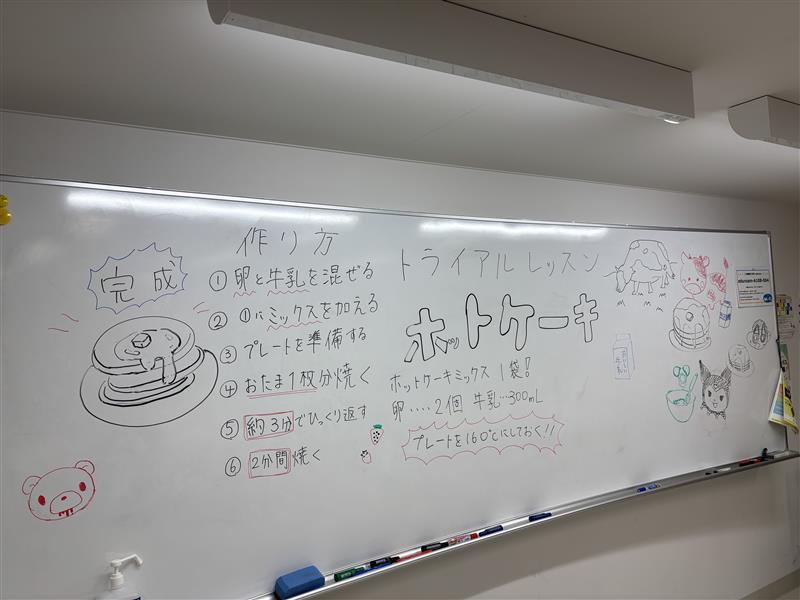 作り方
完成
① 卵と牛乳を混ぜる
② ①にミックスを加える
③ プレートを準備する
④ おたま1枚分焼く
⑤ 約3分でひっくり返す
⑥ 2分間焼く
トライアルレッスン
ホットケーキ
ホットケーキミックス 1袋!
卵‥‥2個 牛乳…300mL
プレートを160℃にしておく!!